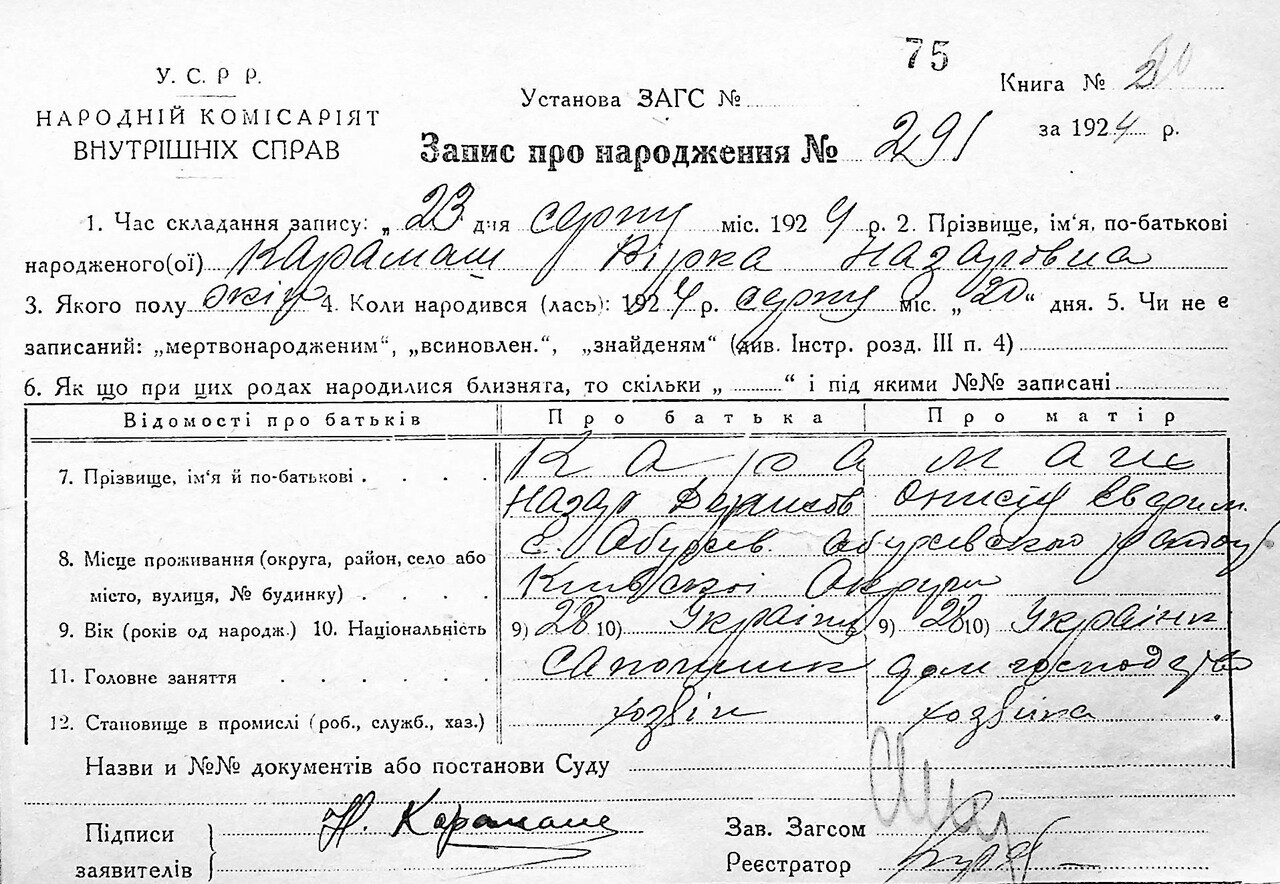 75
У. С. Р Р.
НАРОДНІЙ КОМІСАРІЯТ
ВНУТРІШНІХ СПРАВ
Установа ЗАГС №
Книга № 20
за 1924 р.
Запис про народження № 291
1. Час складання запису: „ 23 дня серпня міс. 1924 р. 2. Прізвище, ім‘я, по-батькові
народженого(ої) Карамаш Вірка Назаровна
3. Якого полу жін 4. Коли народився (лась): 1924 р. серпня міс. „ 20 “ дня. 5. Чи не є
записаний: „мертвонародженим“, „всиновлен.“, „знайденям“ (див. Інстр. розд. III п. 4)
6. Як що при цих родах народилися близнята, то скільки „ “ і під якими №№ записані
Відомості про батьків Про батька Про матір
7. Прізвище, ім‘я й по-батькові Карамаш
Назар Онисія
8. Місце проживання (округа, район, село або с. Обухів
місто, вулиця, № будинку) Київської Округи
9. Вік (років од народж.) 10. Національність 9) 28 10) Українц 9) 28 10) Українк
11. Головне заняття дом господарство
12. Становище в промислі (роб., служб., хаз.) хозяін хозяіка
Назви и №№ документів або постанови Суду
Підписи
заявителів
Н. Карамаш
Зав. Загсом
Реєстратор